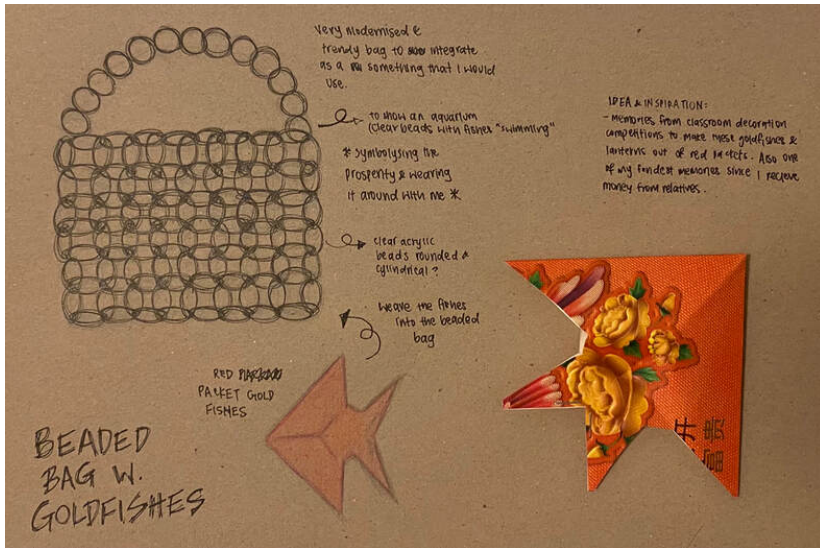 Very modernised &
trendy bag to integrate
as a something that I would
use.
to show an aquarium
(clear beads with fishes "swimming"
* symbolysing the
prosperity & wearing
it around with me *
clear acrylic
beads rounded &
cylindrical?
weave the fishes
into the beaded
bag
RED
PACKET GOLD
FISHES
BEADED
BAG W.
GOLDFISHES
IDEA & INSPIRATION:
- Memories from classroom decoration
competitions to make these goldfishes &
lanterns out of red packets. Also one
of my fondest memories since I recieve
money from relatives.
开
富贵